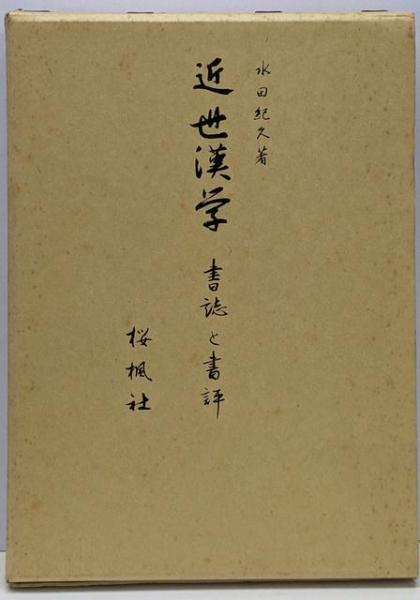 水田紀久著
近世漢学
書誌と書評
桜楓社